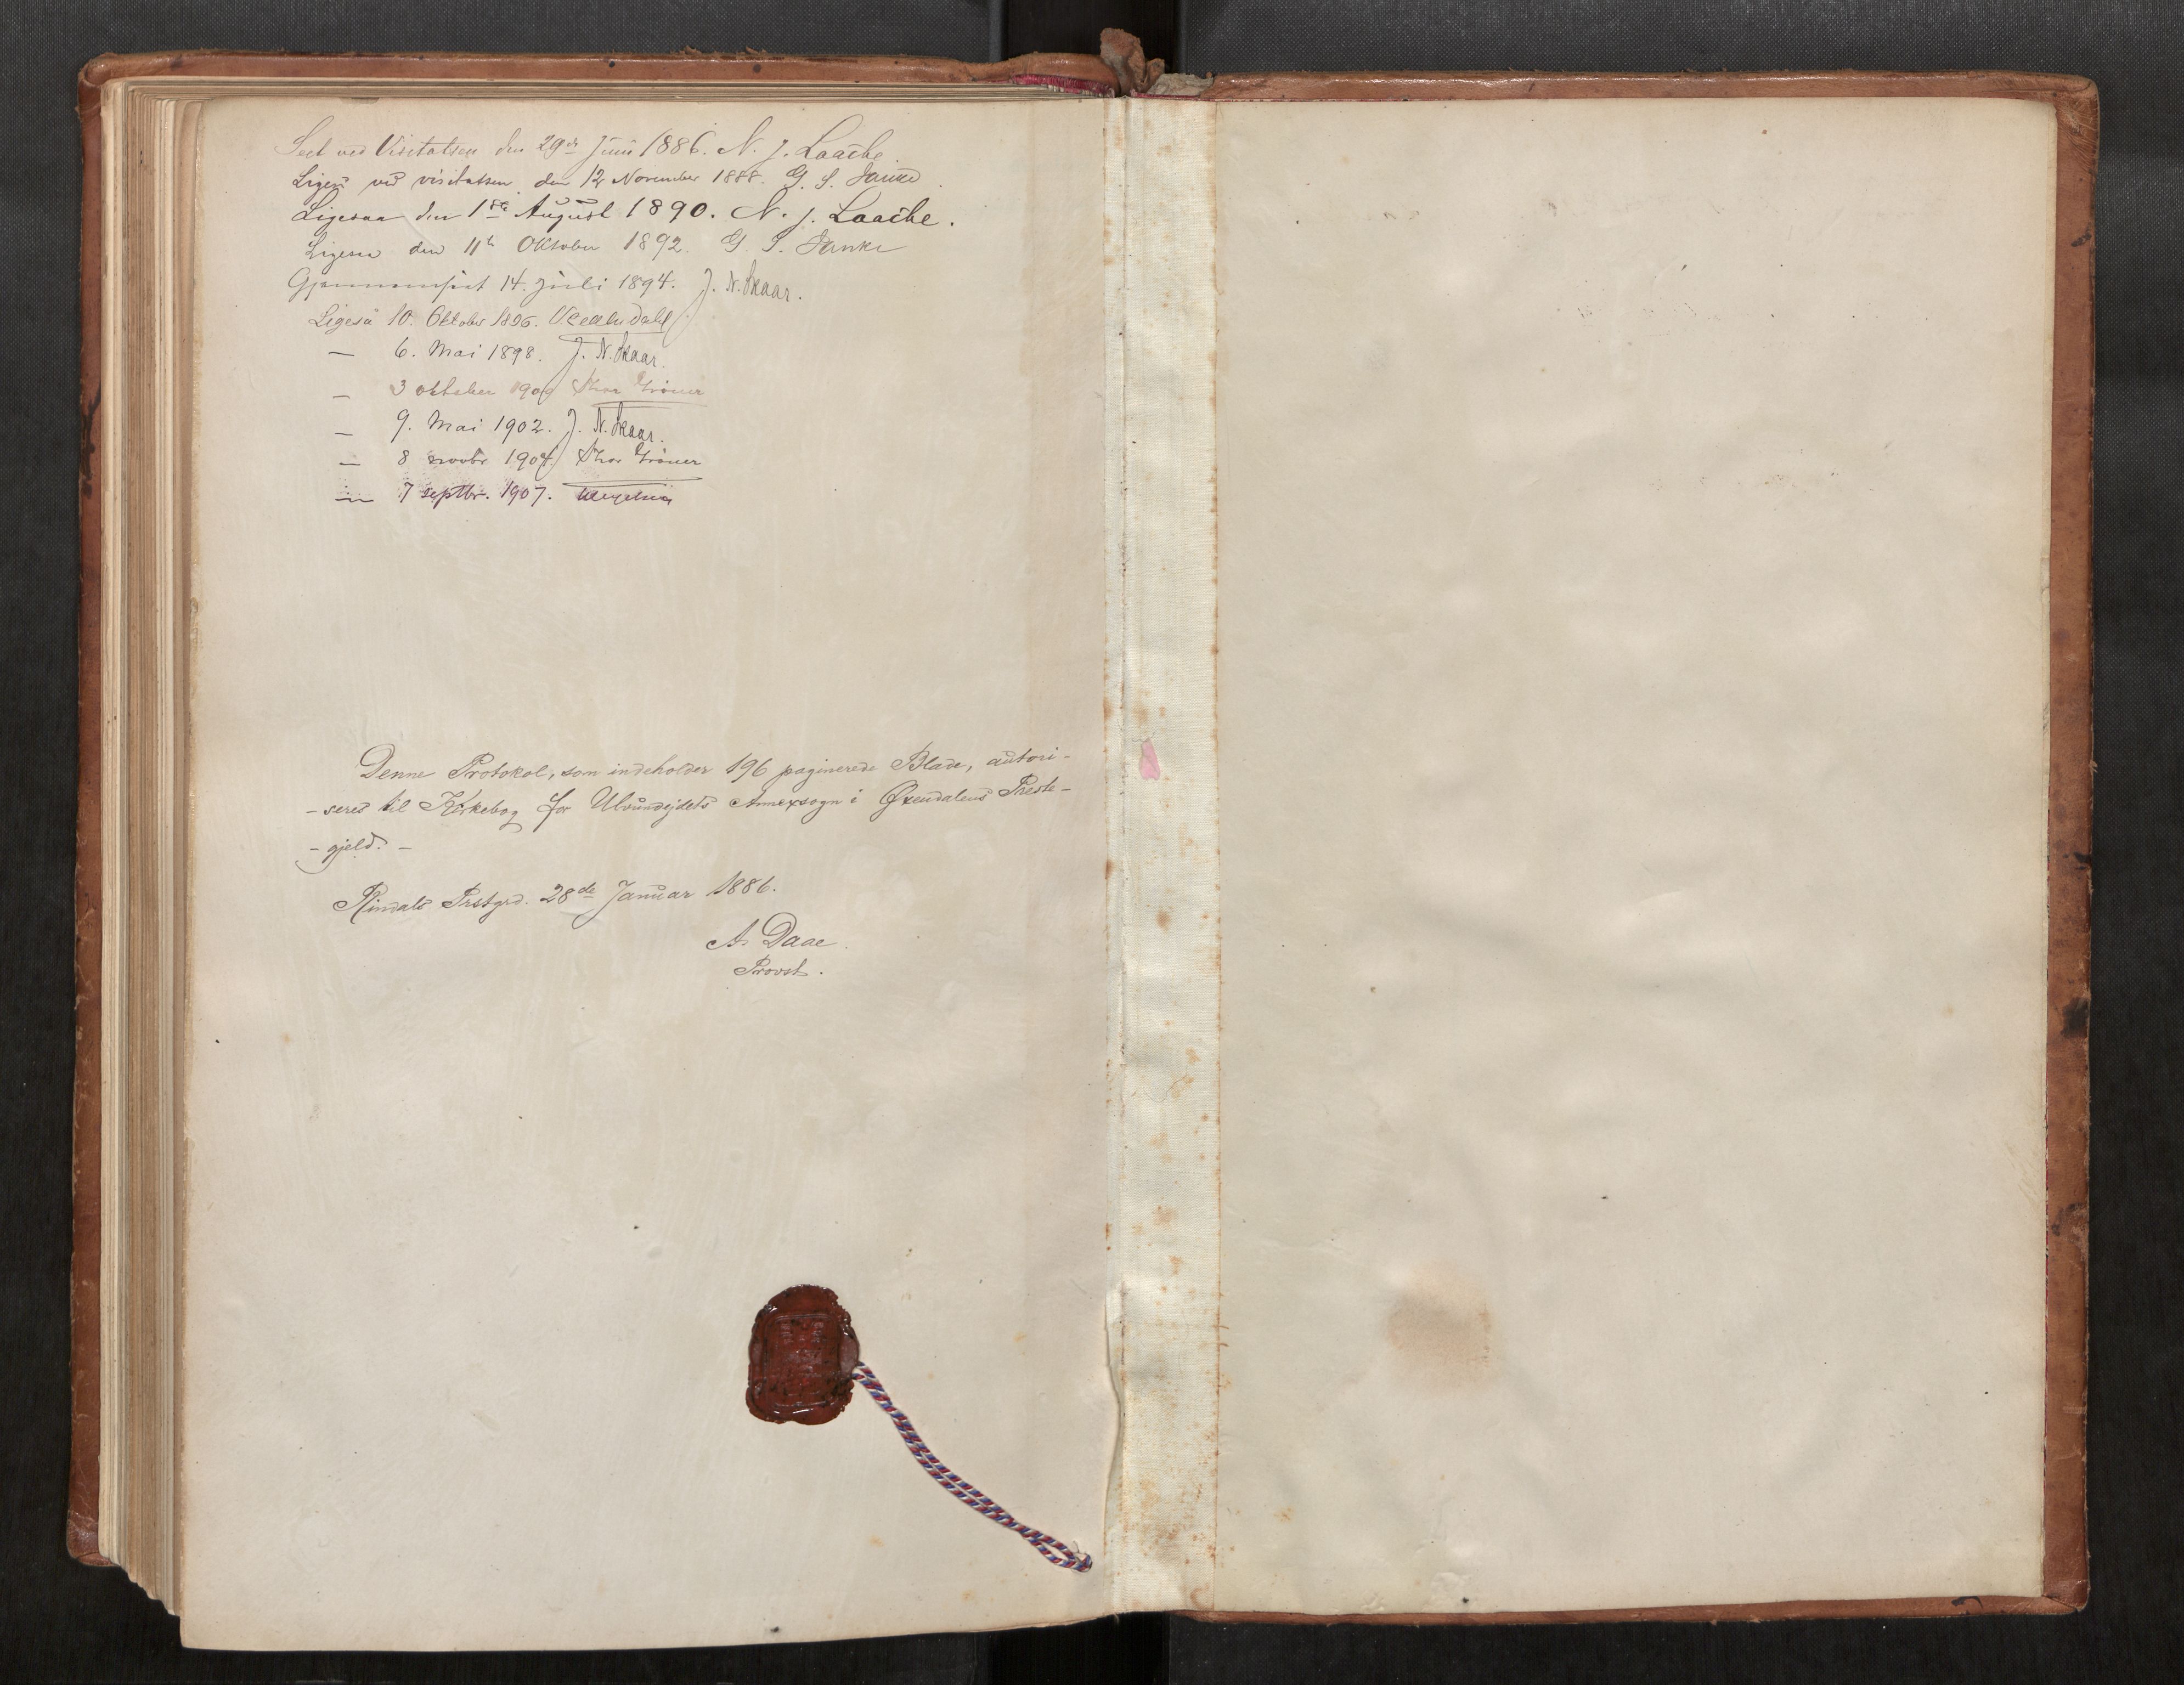 Seet ved Visitatsen den 29de Juni 1886. N. J. Laache.
Ligesaa ved visitatsen den 12 November 1888. G. S.
Ligesaa den 1ste August 1890. N. J. Laache.
Ligesaa den 11te Oktober 1892. G. S.
Gjennemseet 14. Juli 1894. J. N. Skaar.
Ligeså 10. Oktober 1896. Dahl
— 6. Mai 1898. J. N. Skaar.
— 3 oktober 1900
— 9. Mai 1902. J. N. Skaar.
— 8 novbr 1904
— 7 septbr. 1907. Wexelsen
Denne Protokol, som indeholder 196 paginerede Blade, autori-
-seres til Kirkebog for Ulvundejdets Annexsogn i Øxendalens Preste-
-gjeld. —
Rindals Prstgrd. 28de Januar 1886.
A. Daae.
Provst.